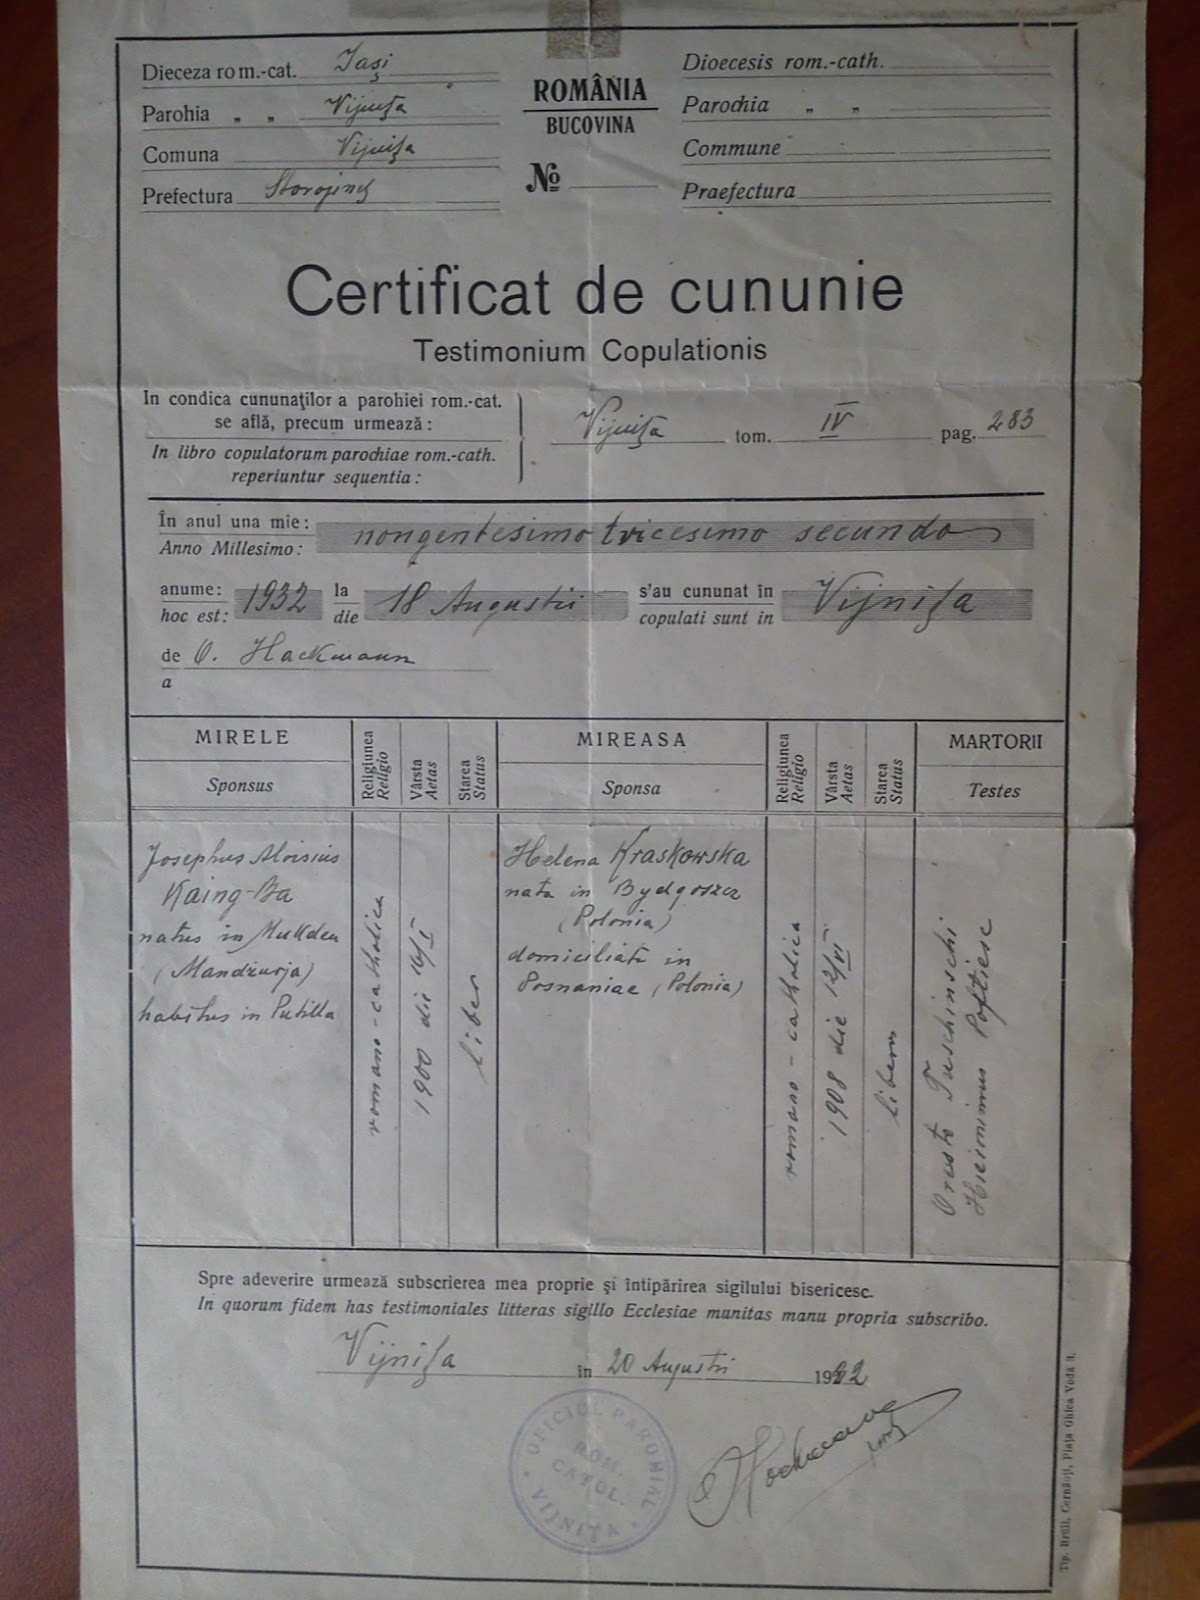 Dieceza rom.-cat. Iași
Parohia „ „ Vijnița
Comuna Vijnița
Prefectura Storojineț
ROMÂNIA
BUCOVINA
№
Dioecesis rom.-cath.
Parochia „ „
Commune
Praefectura
Certificat de cununie
Testimonium Copulationis
In condica cununaților a parohiei rom.-cat.
se află, precum urmează:
In libro copulatorum parochiae rom.-cath.
reperiuntur sequentia:
Vijnița tom. IV pag. 283
În anul una mie:
Anno Millesimo:
nongentesimo tricesimo secundo
anume:
hoc est:
1932
la
die
18 Augustii
s'au cununat în
copulati sunt in
Vijnița
de O. Hackmann
a
MIRELE
Sponsus
Religiunea
Religio
Vârsta
Aetas
Starea
Status
MIREASA
Sponsa
Religiunea
Religio
Vârsta
Aetas
Starea
Status
MARTORII
Testes
Josephus Aloisius
Kaing-Ba
natus in Mukden
(Mandżurja)
habitus in Putilla
romano-catholica
1900 die 16/I
liber
Helena Kraskowska
nata in Bydgoszcz
(Polonia)
domiciliata in
Posnaniae (Polonia)
romano-catholica
1908 die 12/VI
libera
Oreste Tuschinschi
Hieronimus
Spre adeverire urmează subscrierea mea proprie și întipărirea sigilului bisericesc.
In quorum fidem has testimoniales litteras sigillo Ecclesiae munitas manu propria subscribo.
Vijnița în 20 Augustii 1932
OFICIUL PAROHIAL
ROM.
CATOL.
VIJNIȚA
Hackmann
Tip. Brüll, Cernăuți, Piața Ghica Vodă 3.